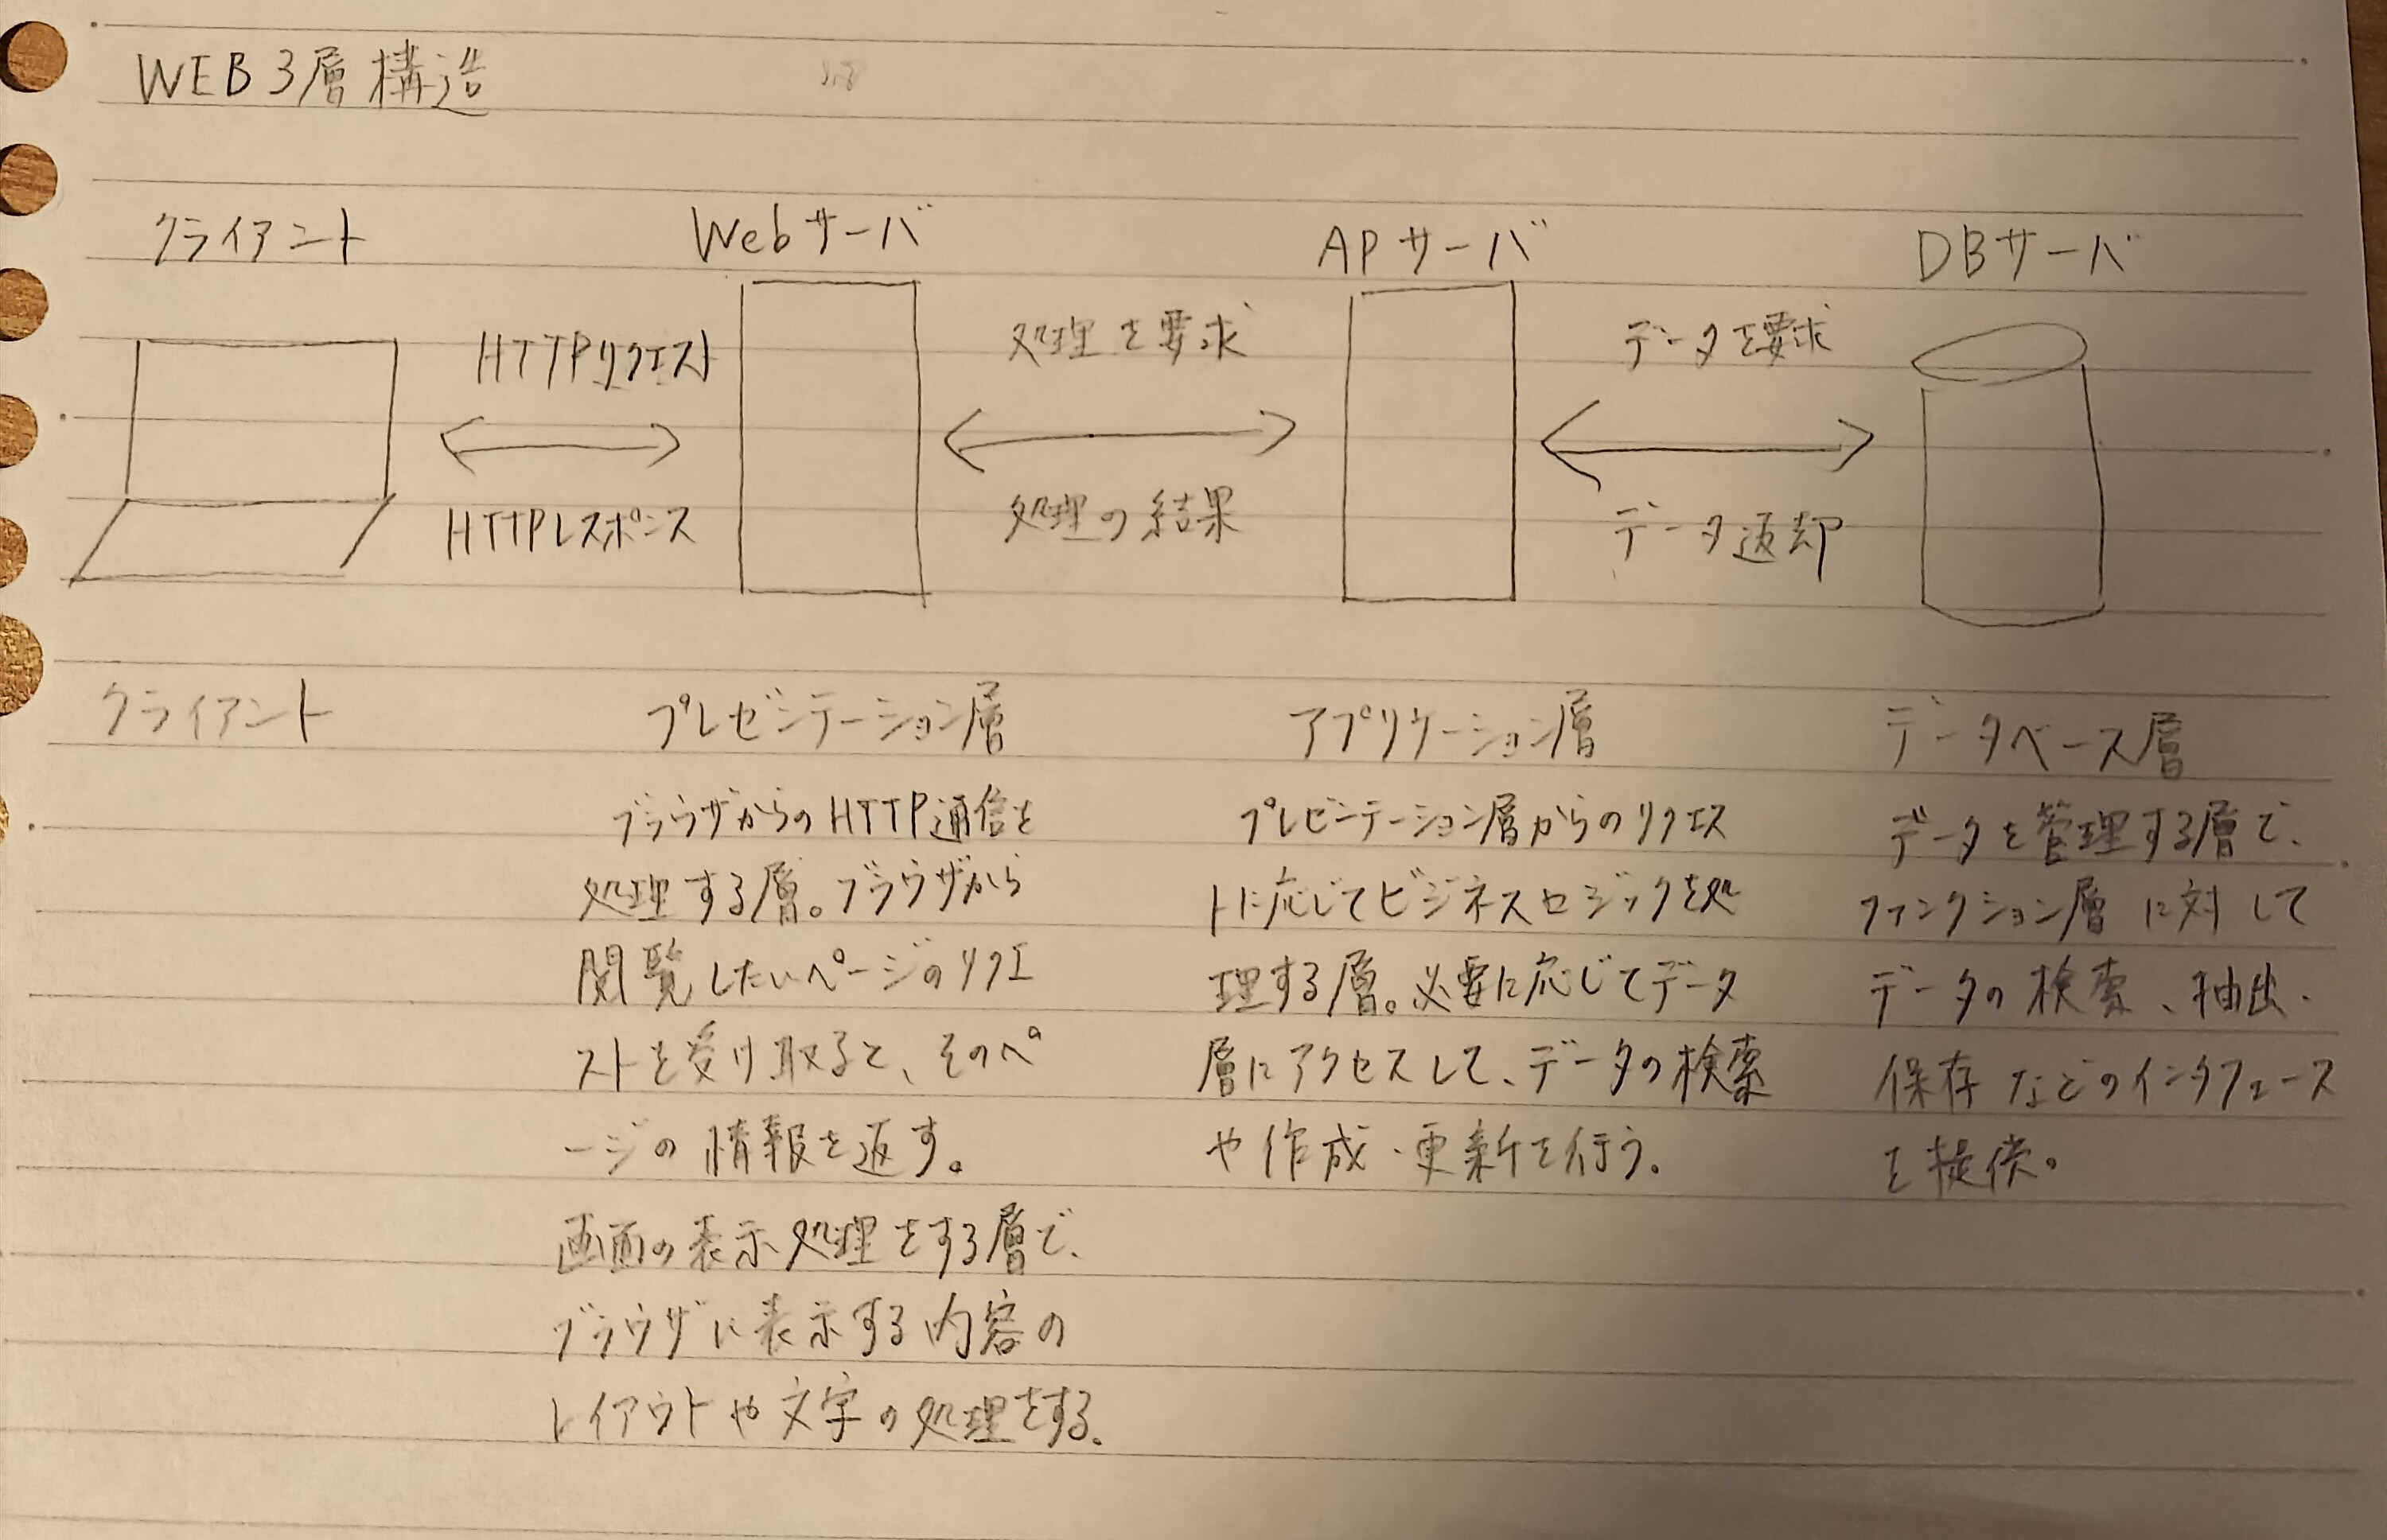 WEB3層構造
クライアント
Webサーバ
APサーバ
DBサーバ
HTTPリクエスト
処理を要求
データを要求
HTTPレスポンス
処理の結果
データ返却
クライアント
プレゼンテーション層
ブラウザからのHTTP通信を
処理する層。ブラウザから
閲覧したいページのリクエ
ストを受け取ると、そのペ
ージの情報を返す。
画面の表示処理をする層で、
ブラウザに表示する内容の
レイアウトや文字の処理をする。
アプリケーション層
プレゼンテーション層からのリクエス
トに応じてビジネスロジックを処
理する層。必要に応じてデータ
層にアクセスして、データの検索
や作成・更新を行う。
データベース層
データを管理する層で、
ファンクション層に対して
データの検索、抽出、
保存などのインタフェース
を提供。